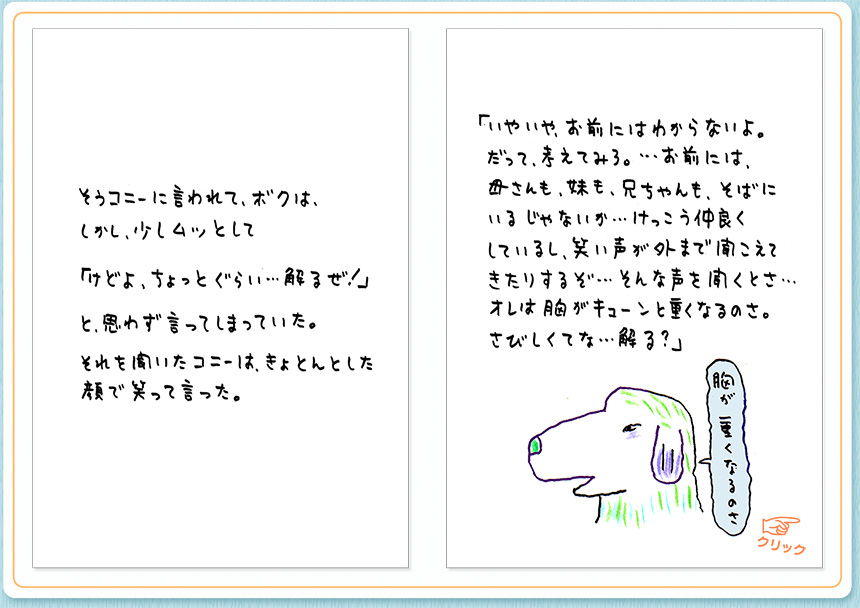 そうコニーに言われて、ボクは、
しかし、少しムッとして
「けどよ、ちょっとぐらい…解るぜ!」
と、思わず言ってしまっていた。
それを聞いたコニーは、きょとんとした
顔で笑って言った。
「いやいや、お前にはわからないよ。
だって、考えてみろ。…お前には、
母さんも、妹も、兄ちゃんも、そばに
いるじゃないか…けっこう仲良く
しているし、笑い声が外まで聞こえて
きたりするぞ…そんな声を聞くとさ…
オレは胸がキューンと重くなるのさ。
さびしくてな…解る?」
胸が重くなるのさ
クリック